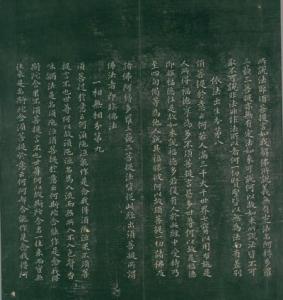 所說法耶須菩提言如我解佛所說義無有定法名阿耨多羅
三藐三菩提亦無有定法如來可說何以故如來所說法皆不可
取不可說非法非非法所以者何一切賢聖皆以無為法而有差別
依法出生分第八
須菩提於意云何若人滿三千大千世界七寶以用布施是
人所得福德寧為多不須菩提言甚多世尊何以故是福德
即非福德性是故如來說福德多若復有人於此經中受持乃
至四句偈等為他人說其福勝彼何以故須菩提一切諸佛及
諸佛阿耨多羅三藐三菩提法皆從此經出須菩提所謂
佛法者即非佛法
一相無相分第九
須菩提於意云何須陀洹能作是念我得須陀洹果不須菩
提言不也世尊何以故須陀洹名為入流而無所入不入色聲香
味觸法是名須陀洹須菩提於意云何斯陀含能作是念我得
斯陀含果不須菩提言不也世尊何以故斯陀含名一往來而實無
往來是名斯陀含須菩提於意云何阿那含能作是念我得阿